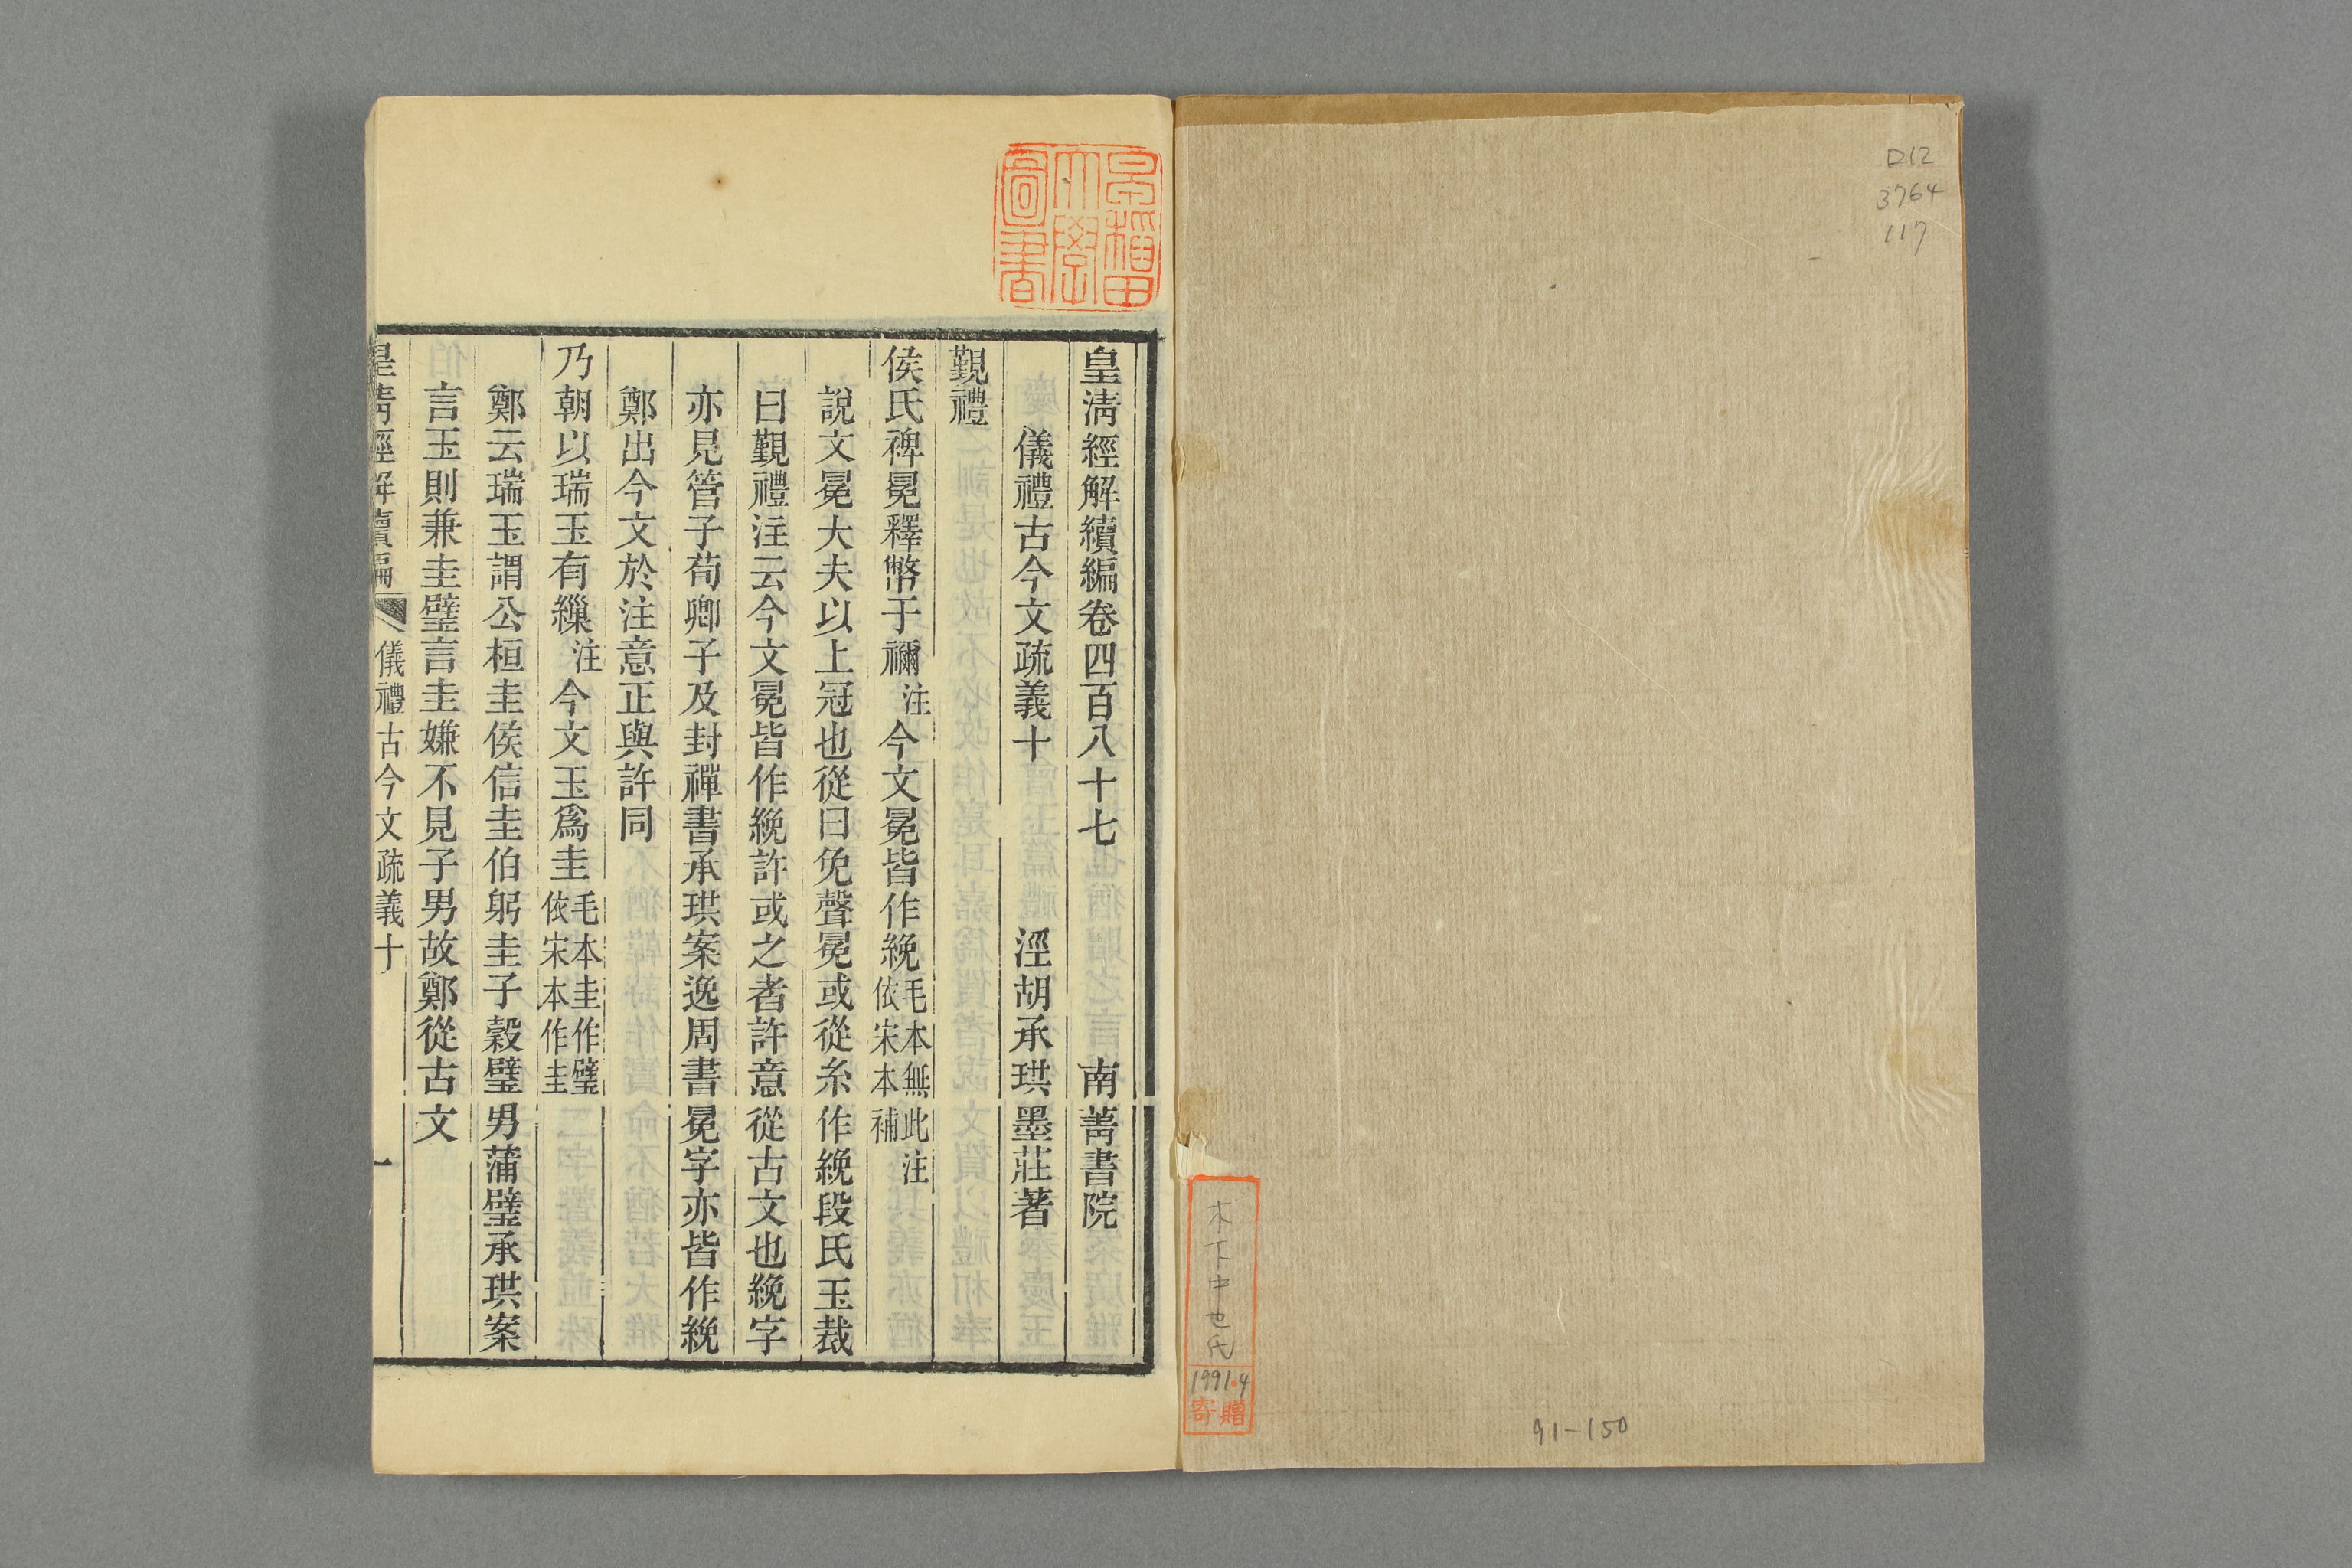 D12
3764
117
木下中也氏
1991.4
寄贈
91-150
早稲田大學圖書
皇清經解續編卷四百八十七 南菁書院
儀禮古今文疏義十 涇胡承珙墨莊著
覲禮
侯氏裨冕釋幣于禰注今文冕皆作絻毛本無此注依宋本補
說文冕大夫以上冠也從冃免聲冕或從糸作絻段氏玉裁
曰覲禮注云今文冕皆作絻許或之者許意從古文也絻字
亦見管子荀卿子及封禪書承珙案逸周書冕字亦皆作絻
鄭出今文於注意正與許同
乃朝以瑞玉有繅注今文玉爲圭毛本圭作璧依宋本作圭
鄭云瑞玉謂公桓圭侯信圭伯躬圭子穀璧男蒲璧承珙案
言玉則兼圭璧言圭嫌不見子男故鄭從古文
皇清經解續編 儀禮古今文疏義十 一